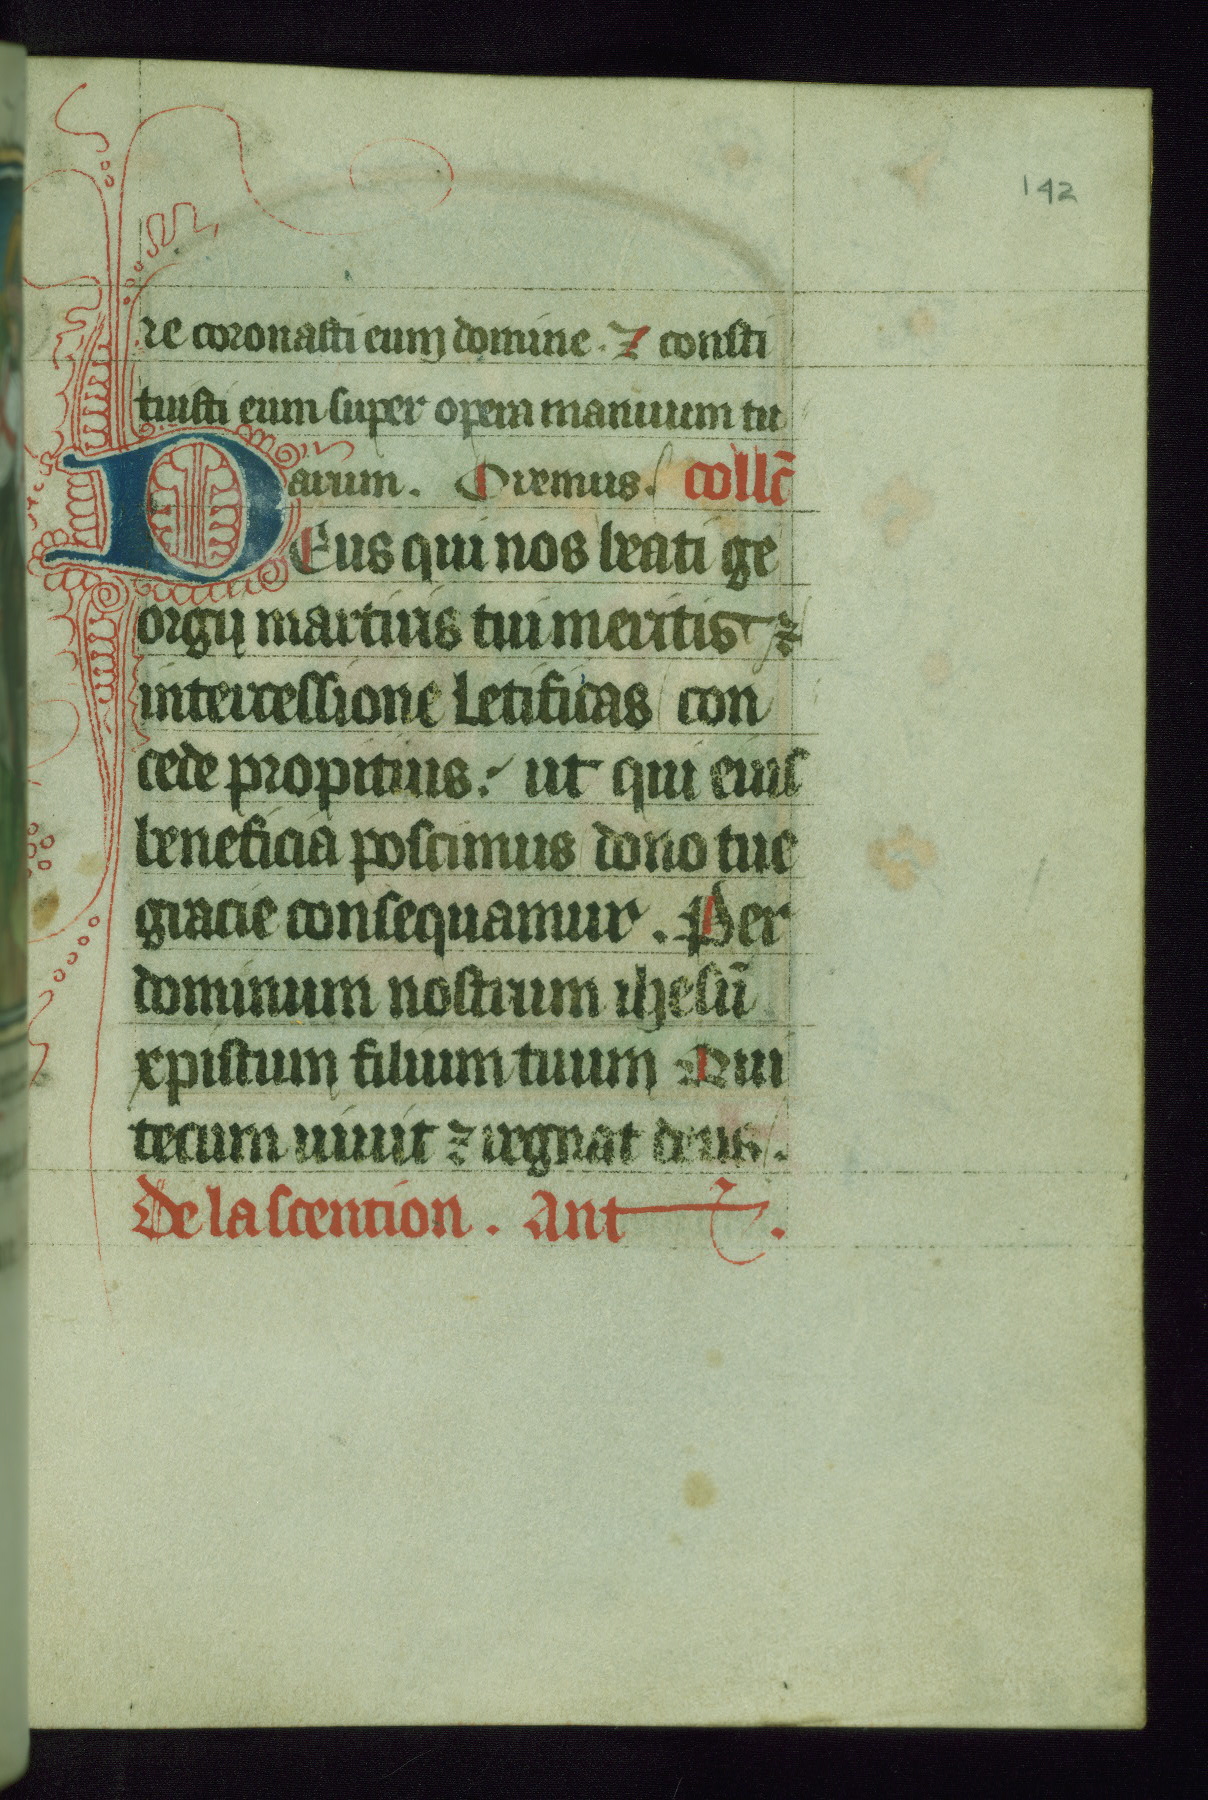 142
re coronasti eum domine. ⁊ consti
tuisti eum super opera manuum tu
arum. Oremus. collc̄
DEus qui nos beati ge
orgij martiris tui meritis ⁊
intercessione letificas con
cede propitius: ut qui eius
beneficia poscimus dono tue
gracie consequamur. Per
dominum nostrum ihesū
xpistum filium tuum Qui
tecum uiuit ⁊ regnat deus.
De lascention. Ant.